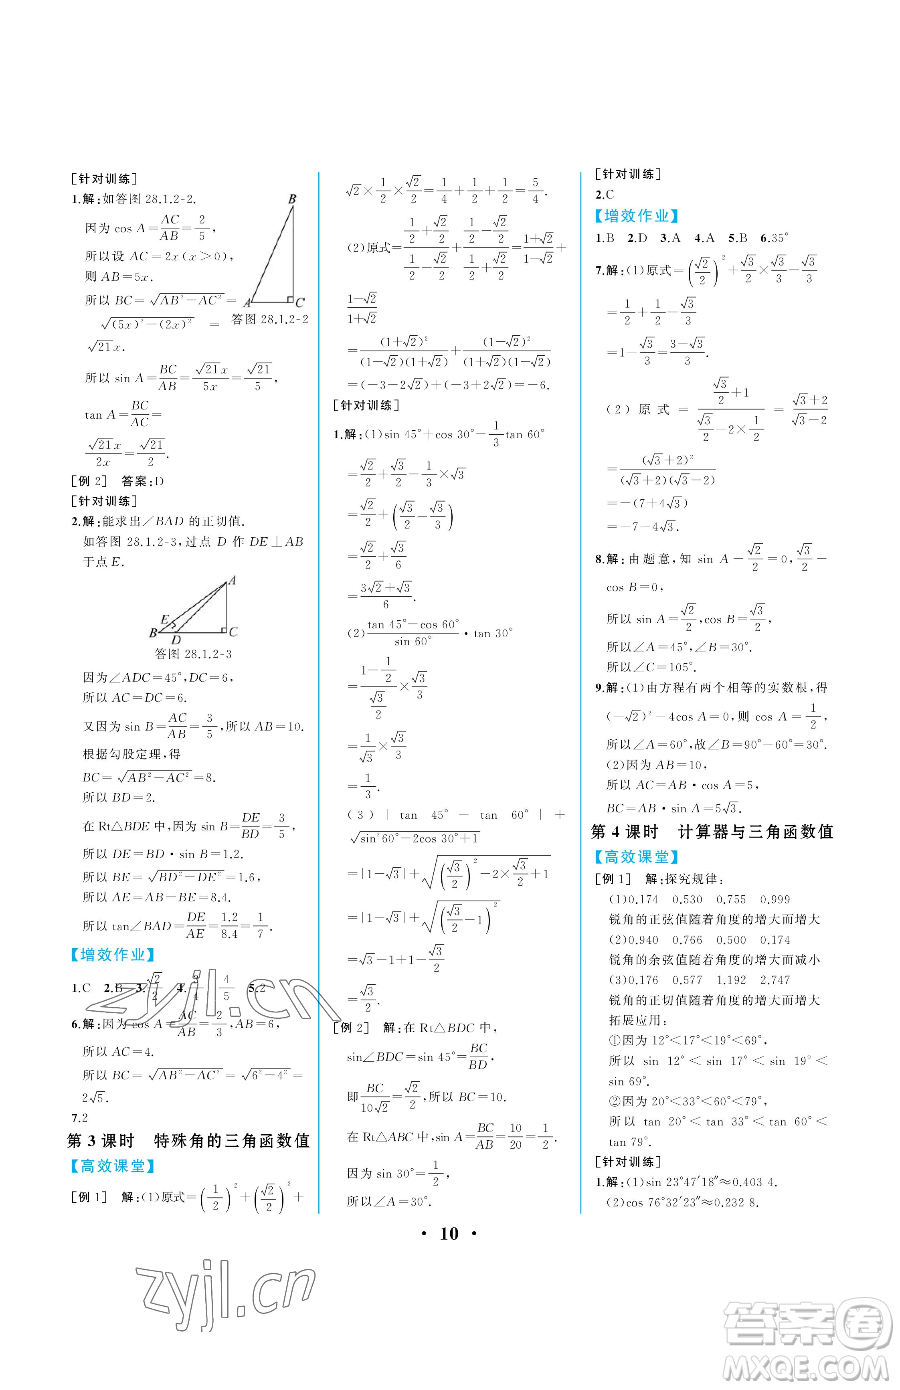 [针对训练]
1.解:如答图 28.1.2-2.
因为 cos A=AC/AB=2/5,
所以设 AC=2x(x>0),
则 AB=5x.
所以 BC=√(AB²-AC²)=
√((5x)²-(2x)²) =
√21x.
B
A
C
答图 28.1.2-2
所以 sin A=BC/AB=√21x/5x=√21/5,
tan A=BC/AC=
√21x/2x=√21/2.
[例 2] 答案:D
[针对训练]
2.解:能求出∠BAD 的正切值.
如答图 28.1.2-3,过点 D 作 DE⊥AB
于点 E.
A
E
B
D
C
答图 28.1.2-3
因为∠ADC=45°,∠C=90°,
所以 AC=DC=6.
又因为 sin B=AC/AB=3/5,所以 AB=10.
根据勾股定理,得
BC=√(AB²-AC²)=8.
所以 BD=2.
在 Rt△BDE 中,sin B=DE/BD=3/5,
所以 DE=BD·sin B=1.2.
所以 BE=√(BD²-DE²)=
所以 AE=AB-BE=8.4.
所以 tan∠BAD=DE/AE=1.2/8.4=1/7.
【增效作业】
1.C 2.B 3.√2/2 4. 4/5 5.2
6.解:因为 cos A=AC/AB=2/3,AB=6,
所以 AC=4.
所以 BC=√(AB²-AC²)=√(6²-4²)=
2√5.
7.2
第 3 课时 特殊角的三角函数值
【高效课堂】
[例 1] 解:(1)原式=(1/2)²+(√2/2)²+
√2×1/2×√2/2=1/4+1/2+1/2=5/4.
(2)原式=(1/2+√2/2)/(1/2-√2/2)=(1+√2)/(1-√2)+
(1-√2)/(1+√2)
=(1+√2)²/((1-√2)(1+√2))+(1-√2)²/((1+√2)(1-√2))
=(-3-2√2)+(-3+2√2)=-6.
[针对训练]
1.解:(1)sin 45°+cos 30°-1/3tan 60°
=√2/2+√3/2-1/3×√3
=√2/2+(√3/2-√3/3)
=√2/2+√3/6
=(3√2+√3)/6.
(2)(tan 45°-cos 60°)/sin 60°·tan 30°
=(1-1/2)/(√3/2)×√3/3
=1/√3×√3/3
=1/3.
(3)|tan 45°-tan 60°|+
√(sin²60°-2cos 30°+1)
=|1-√3|+√((√3/2)²-2×√3/2+1)
=|1-√3|+√((√3/2-1)²)
=√3-1+1-√3/2
=√3/2.
[例 2] 解:在 Rt△BDC 中,
sin∠BDC=sin 45°=BC/BD,
即BC/10√2=√2/2,所以 BC=10.
在 Rt△ABC 中,BC/AB=10/20=1/2,
因为 sin 30°=1/2,
所以∠A=30°.
[针对训练]
2.C
【增效作业】
1.B 2.D 3.A 4.A 5.B 6.35°
7.解:(1)原式=(√2/2)²+√3/2×√3/3-√3/3
=1/2+1/2-√3/3
=1-√3/3=(3-√3)/3.
(2)原式=(√3/2+1)/(√3/2-2×1/2)=(√3+2)/(√3-2)
=(√3+2)²/((√3+2)(√3-2))
=-(7+4√3)
=-7-4√3.
8.解:由题意,知 sin A-√2/2=0,√3/2-
cos B=0,
所以 sin A=√2/2,cos B=√3/2.
所以∠A=45°,∠B=30°.
所以∠C=105°.
9.解:(1)由方程有两个相等的实数根,得
(-√2)²-4cos A=0,则 cos A=1/2,
所以∠A=60°,故∠B=90°-60°=30°.
(2)因为 AB=10,
所以 AC=AB·cos A=5,
BC=AB·sin A=5√3.
第 4 课时 计算器与三角函数值
【高效课堂】
[例 1] 解:探究规律:
(1)0.174 0.530 0.755 0.999
锐角的正弦值随着角度的增大而增大
(2)0.940 0.766 0.500 0.174
锐角的余弦值随着角度的增大而减小
(3)0.176 0.577 1.192 2.747
锐角的正切值随着角度的增大而增大
拓展应用:
①因为 12°<17°<19°<69°,
所以 sin 12°<sin 17°<sin 19°<
sin 69°.
②因为 20°<33°<60°<79°,
所以 tan 20°<tan 33°<tan 60°<
tan 79°.
[针对训练]
1.解:(1)sin 23°47′18″≈0.403 4.
(2)cos 76°32′53″≈0.232 8.
• 10 •
zyjl.cn
zyjl.cn
答案圈
MXQE.COM